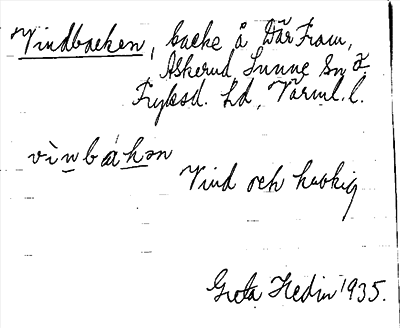 Vindbacken, backe å Där Fram,
Askerud, Sunne Sn Ö.
Fryksd. Hd, Värml. l.
vìnbákən
Vind och krokig
Greta Hedin 1935.